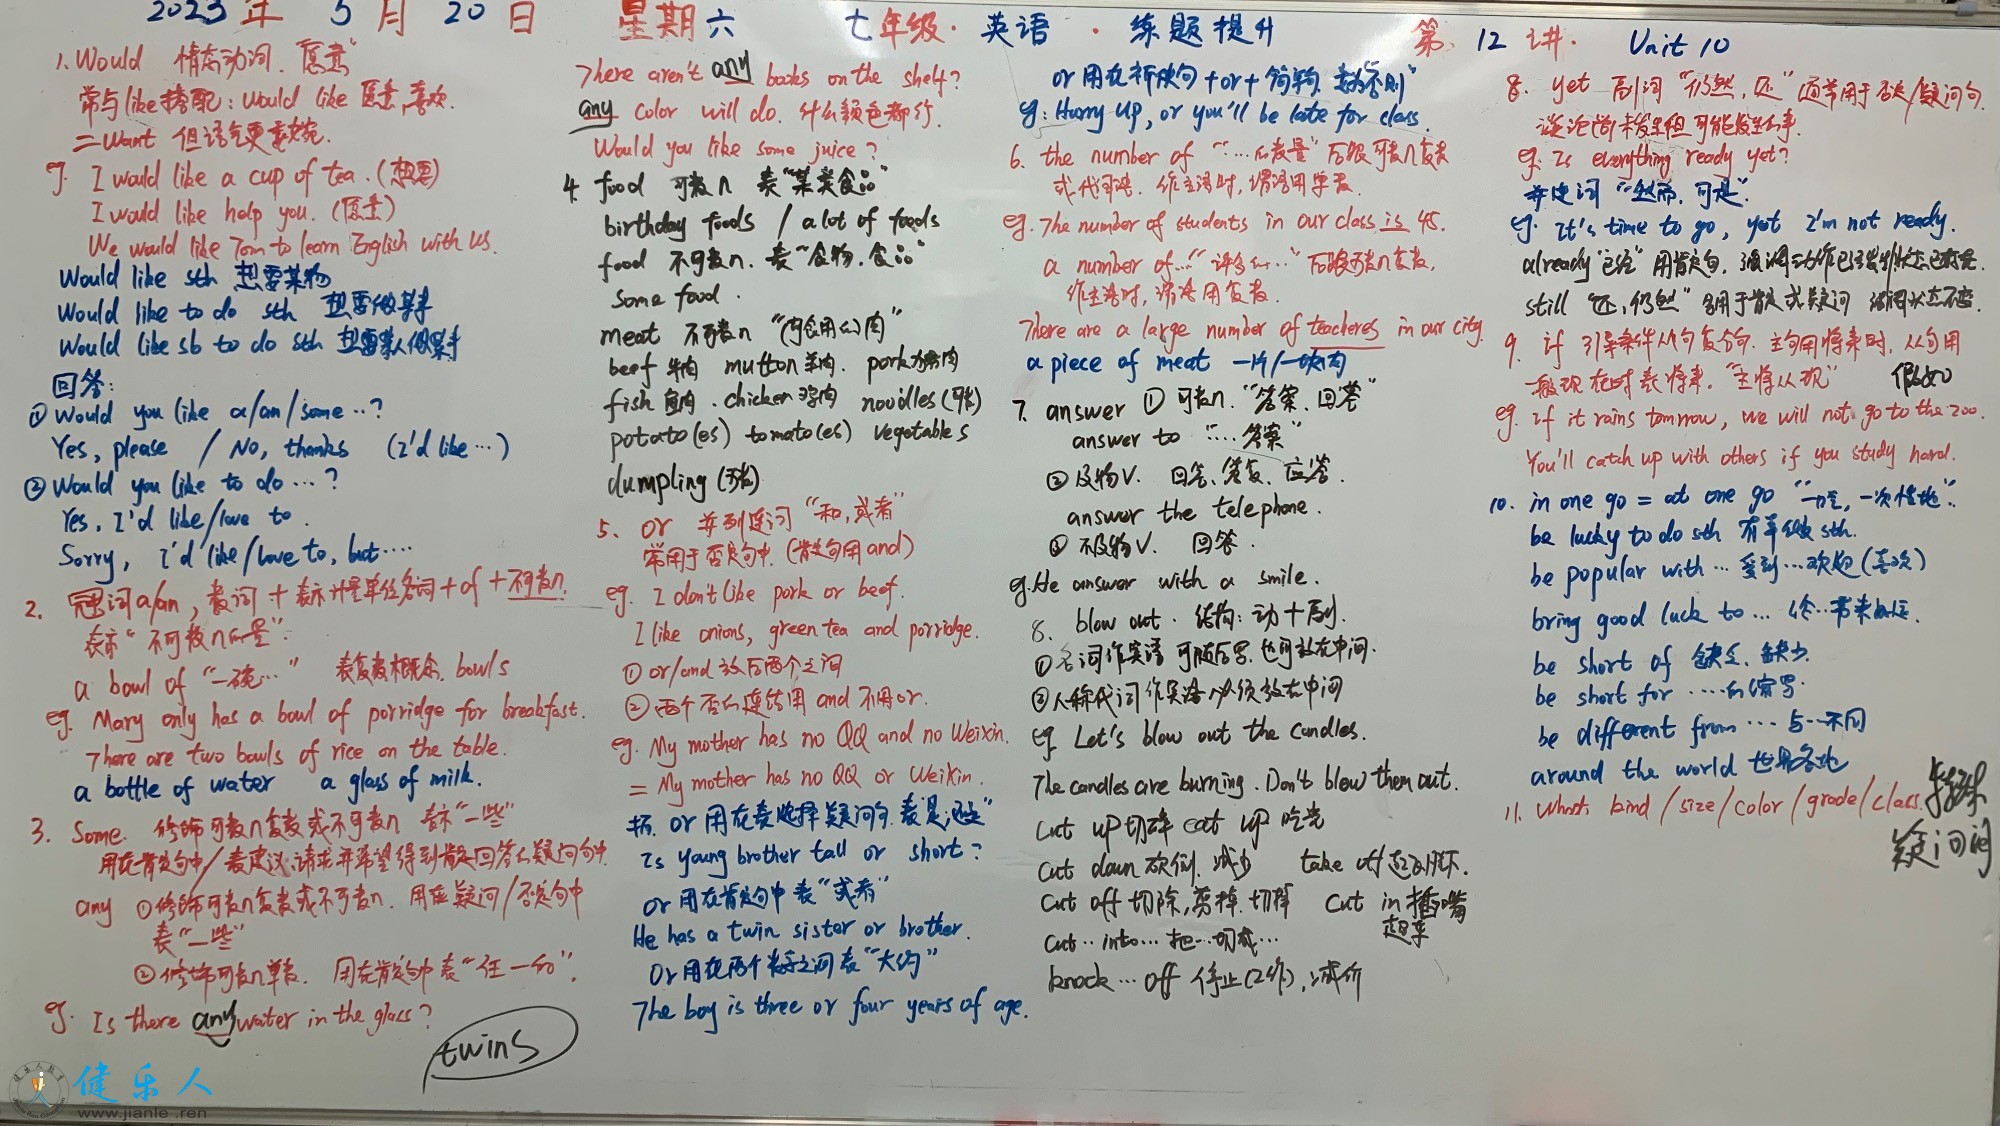 2023年 5月 20日 星期六 七年级·英语·练题提升 第12讲. Unit 10
1. Would 情态动词. "愿意"
常与like搭配: Would like 愿意,喜欢.
=Want 但语气更委婉.
eg. I would like a cup of tea. (想要)
I would like help you. (愿意)
We would like Tom to learn English with us.
Would like sth 想要某物
Would like to do sth 想要做某事
Would like sb to do sth 想要某人做某事
回答:
① Would you like a/an/some...?
Yes, please / No, thanks (I'd like ...)
② Would you like to do ...?
Yes, I'd like/love to.
Sorry, I'd like/love to, but....
2. 冠词a/an, 数词 + 表示计量单位名词 + of + 不可数n.
表示"不可数n的量".
a bowl of "一碗..." 表复数概念. bowls
eg. Mary only has a bowl of porridge for breakfast.
There are two bowls of rice on the table.
a bottle of water a glass of milk.
3. Some. 修饰可数n复数或不可数n 表示"一些"
用在肯定句中/表建议,请求并希望得到肯定回答的疑问句中.
any ①修饰可数n复数或不可数n. 用在疑问/否定句中
表"一些"
②修饰可数n单数. 用在肯定句中表"任一的".
eg. Is there any water in the glass?
twins
There aren't any books on the shelf?
any color will do. 什么颜色都行.
Would you like some juice?
4. food 可数n 表"某类食品"
birthday foods / a lot of foods
food 不可数n. 表"食物.食品"
some food.
meat 不可数n "(可食用的)肉"
beef 牛肉 mutton 羊肉. pork 猪肉
fish 鱼肉. chicken 鸡肉 noodles (可数)
potato(es) tomato(es) vegetables
dumpling (可数)
5. or 并列连词 "和,或者"
常用于否定句中. (肯定句用and)
eg. I don't like pork or beef.
I like onions, green tea and porridge.
① or/and 放后两个之间
② 两个否的连结用 and 不用or.
eg. My mother has no QQ and no Weixin.
= My mother has no QQ or Weixin.
拓. or 用在表选择疑问句,表"是...还是"
Is young brother tall or short?
or 用在肯定句中 表"或者"
He has a twin sister or brother.
Or 用在两个数字之间 表"大约"
The boy is three or four years of age.
or 用在祈使句 + or + 简单句. 表"否则"
eg: Hurry up, or you'll be late for class.
6. the number of "...的数量" 后跟可数n复数
或代词. 作主语时, 谓语用单数.
eg. The number of students in our class is 45.
a number of..." 许多的..." 后跟可数n复数,
作主语时, 谓语用复数.
There are a large number of teacheres in our city.
a piece of meat 一片/一块肉
7. answer ① 可数n. "答案.回答"
answer to "....答案"
② 及物V. 回答、答复、应答.
answer the telephone.
③ 不及物V. 回答.
eg. He answer with a smile.
8. blow out. 结构: 动+副.
① 名词作宾语 可放后男,也可放在中间.
② 人称代词作宾语必须放在中间
eg Let's blow out the candles.
The candles are burning. Don't blow them out.
Cut up 切碎 eat up 吃光
Cut down 砍倒. 减少 take off 起飞,脱下.
Cut off 切除,剪掉.切掉 cut in 插嘴
超车
Cut...into... 把...切成...
knock...off 停止(工作),减价
8. yet 副词 "仍然,还" 通常用于否定/疑问句.
谈论尚未发生但可能发生的事.
eg. Is everything ready yet?
并连词 "然而.可是".
eg. It's time to go, yet I'm not ready.
already "已经" 用肯定句,强调动作已经发生状态已存在.
still "还,仍然" 多用于肯定或疑问 强调状态不变.
9. if 引导条件从句复合句. 主句用将来时, 从句用
一般现在时表将来. "主将从现" 假如
eg. If it rains tomrrow, we will not go to the zoo.
You'll catch up with others if you study hard.
10. in one go = at one go "一口气,一次性地".
be lucky to do sth 有幸做sth.
be popular with... 受到...欢迎(喜欢)
bring good luck to ... 给...带来好运.
be short of 缺乏、缺少.
be short for ....的缩写.
be different from... 与...不同
around the world 世界各地
11. What kind / size / color / grade / class. 特殊
疑问词
健乐人
www.jianle.ren